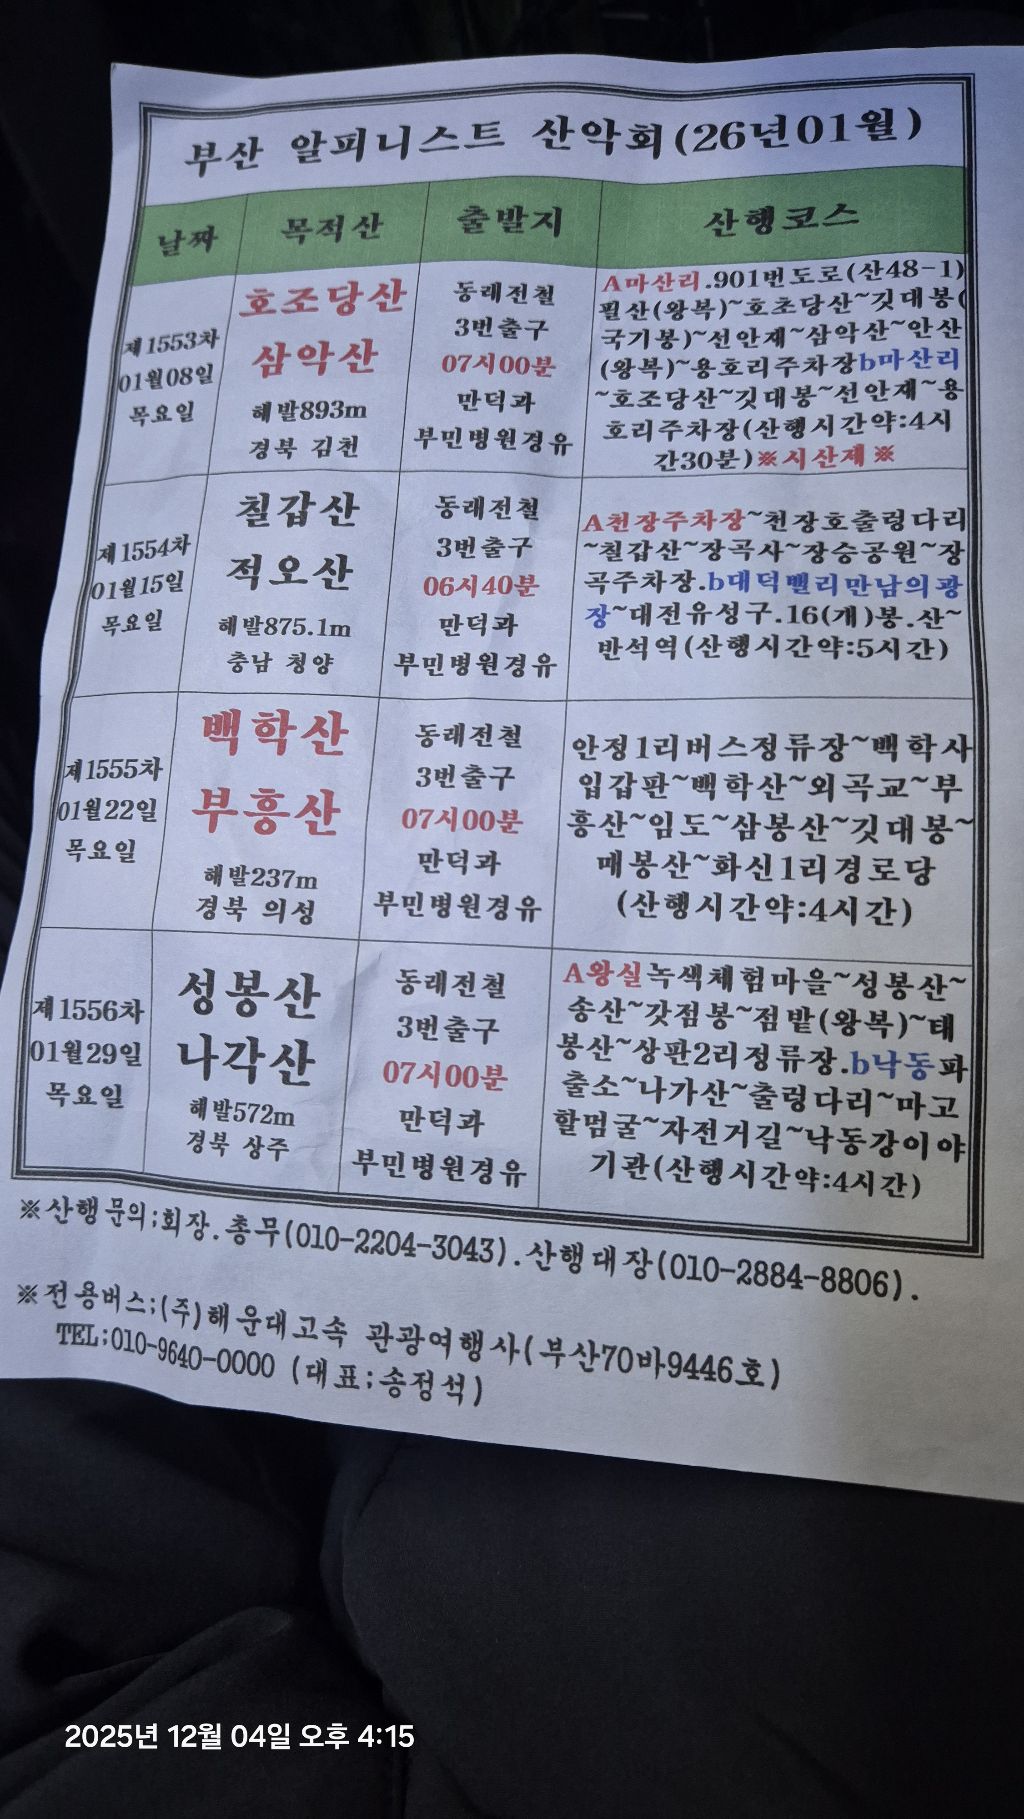 부산 알피니스트 산악회(26년01월)
날짜 목적산 출발지 산행코스
제1553차
01월08일
목요일
호조당산
삼악산
해발893m
경북 김천
동래전철
3번출구
07시00분
만덕과
부민병원경유
A마산리.901번도로(산48-1)
필산(왕복)~호초당산~깃대봉(
국기봉)~선안재~삼악산~안산
(왕복)~용호리주차장b마산리
~호조당산~깃대봉~선안재~용
호리주차장(산행시간약:4시
간30분)※시산제※
제1554차
01월15일
목요일
칠갑산
적오산
해발875.1m
충남 청양
동래전철
3번출구
06시40분
만덕과
부민병원경유
A천장주차장~천장호출렁다리
~칠갑산~장곡사~장승공원~장
곡주차장.b대덕밸리만남의광
장~대전유성구.16(개)봉.산~
반석역(산행시간약:5시간)
제1555차
01월22일
목요일
백학산
부흥산
해발237m
경북 의성
동래전철
3번출구
07시00분
만덕과
부민병원경유
안정1리버스정류장~백학사
입갑판~백학산~외곡교~부
흥산~임도~삼봉산~깃대봉~
매봉산~화신1리경로당
(산행시간약:4시간)
제1556차
01월29일
목요일
성봉산
나각산
해발572m
경북 상주
동래전철
3번출구
07시00분
만덕과
부민병원경유
A왕실녹색체험마을~성봉산~
송산~갓점봉~점밭(왕복)~태
봉산~상판2리정류장.b낙동파
출소~나가산~출렁다리~마고
할멈굴~자전거길~낙동강이야
기관(산행시간약:4시간)
※산행문의;회장.총무(010-2204-3043).산행대장(010-2884-8806).
※전용버스;(주)해운대고속 관광여행사(부산70바9446호)
TEL;010-9640-0000 (대표;송정석)
2025년 12월 04일 오후 4:15